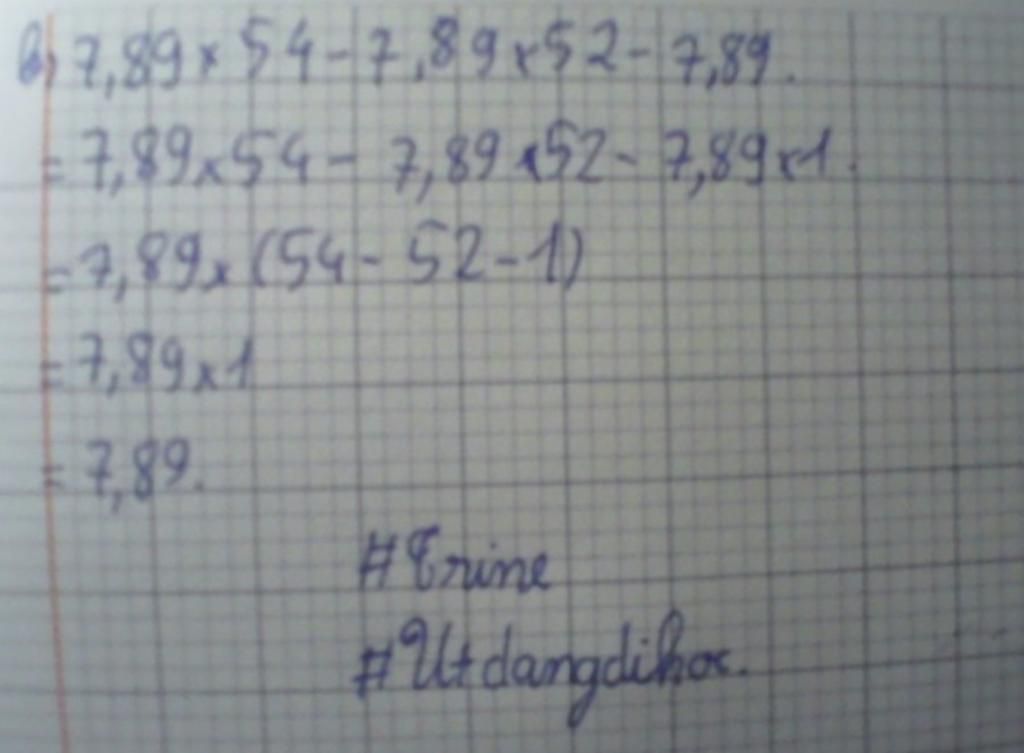 b) 7,89 × 54 - 7,89 × 52 - 7,89.
= 7,89 × 54 - 7,89 × 52 - 7,89 × 1.
= 7,89 × (54 - 52 - 1)
= 7,89 × 1
= 7,89.
#Trine
#Utdangdihoc.